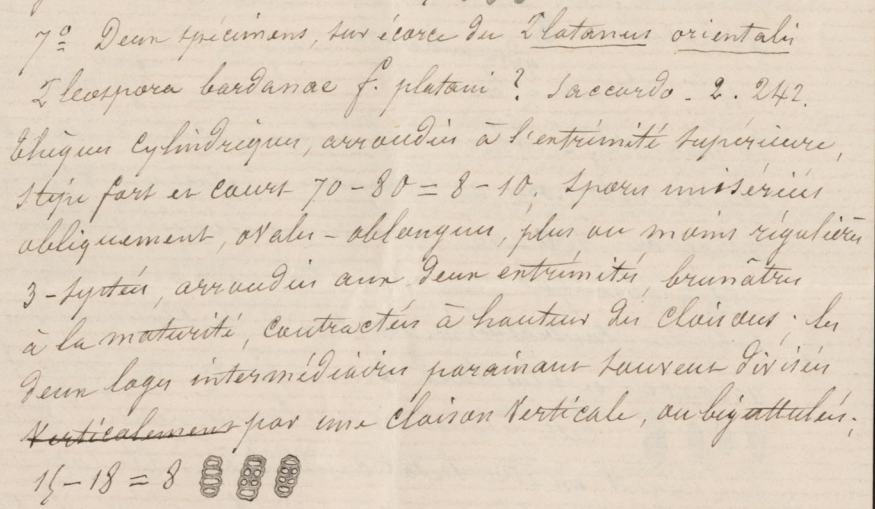 7º Deux spécimens, sur écorce du Platanus orientalis
Pleospora bardanae f. platani ? Saccardo. 2. 242.
Thèques cylindriques, arrondies à l'extrémité supérieure,
stipe fort et court 70-80 = 8-10. Spores unisériées
obliquement, ovales-oblongues, plus ou moins régulières
3-septées, arrondies aux deux extrémités, brunâtres
à la maturité, contractées à hauteur des cloisons; les
deux loges intermédiaires paraissant souvent divisées
verticalement par une cloison verticale, ou biguttulées;
15-18 = 8